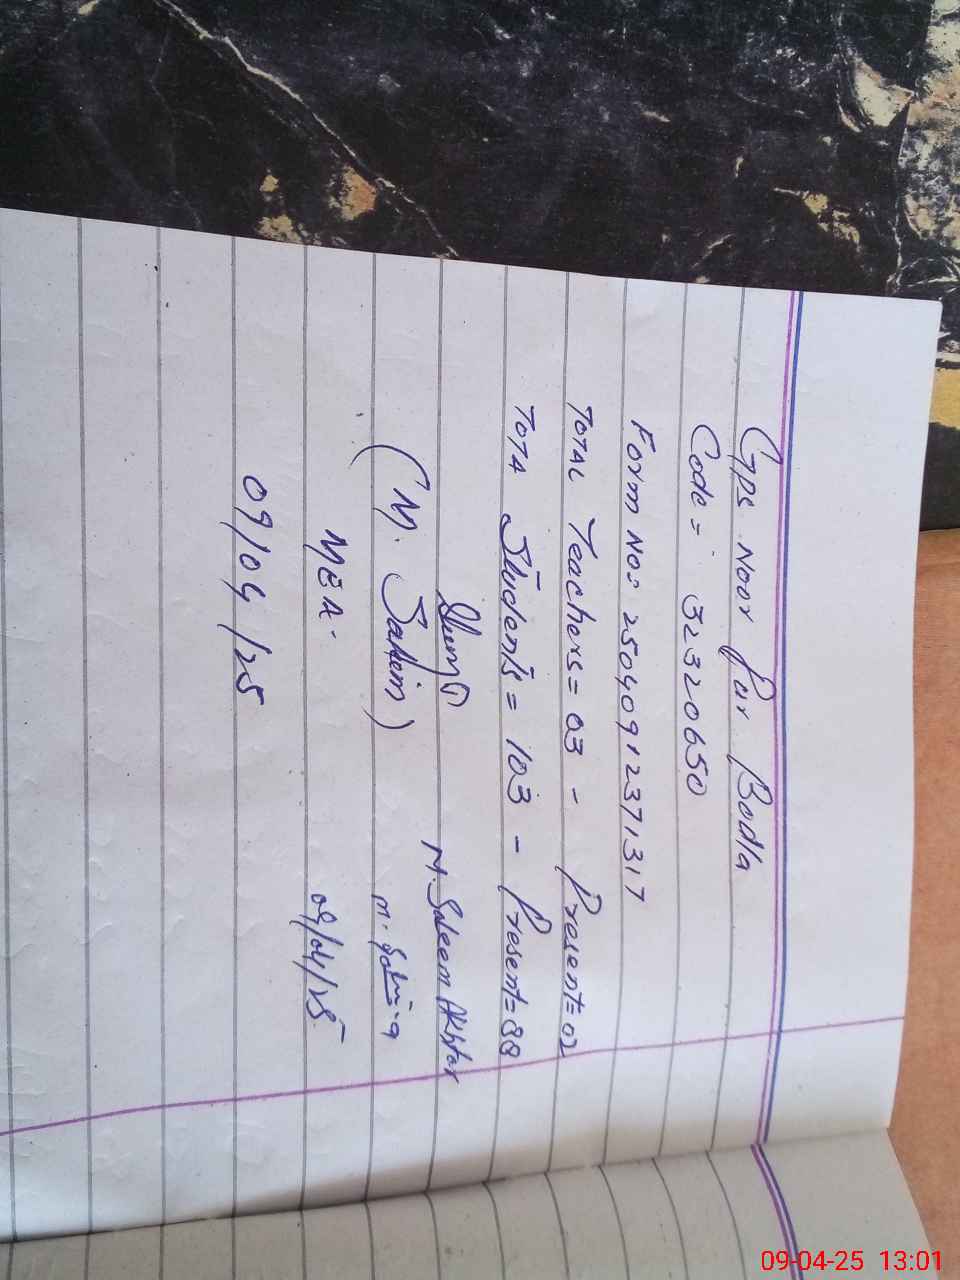 Gps Noor Pur Bodla
Code = 32320650
Form No: 25040912371317
TOTAL Teachers = 03 - Present = 02
TOTA Students = 103 - Present = 88
M. Saleem Akhtar
(M. Salim)
MEA.
09/04/25
09/04/25
09-04-25 13:01